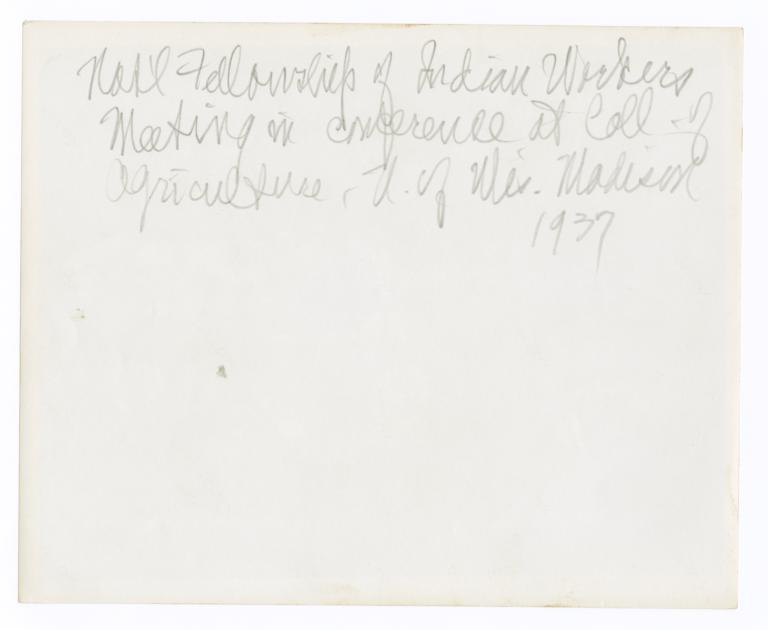 Nat'l Fellowship of Indian Workers
Meeting in conference at Coll - of
Agriculture, U. of Wis. Madison
1937